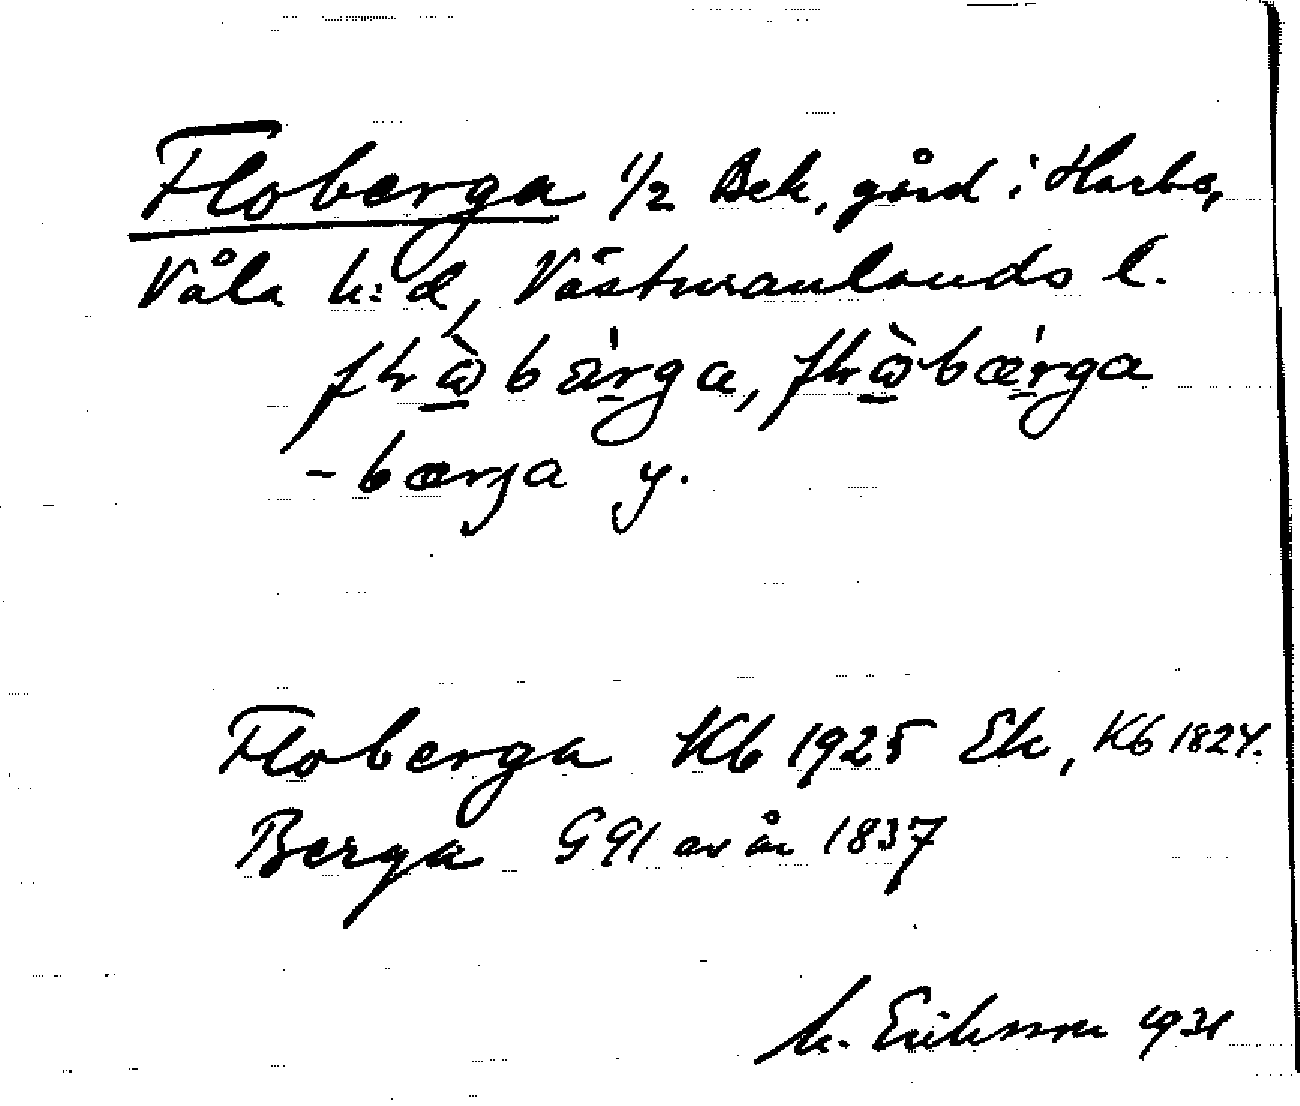 Floberga 1/2 Bek, gård i Harbo,
Våla h:d, Västmanlands l.
-bærga y.
Floberga Kb 1925 Ek, Kb 1824.
Berga G 91 av år 1837
M. Eriksson 1931